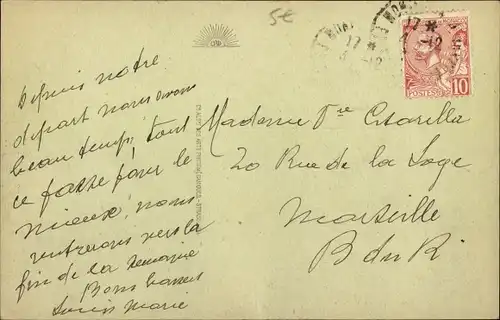 5€
MONT
17 *
-12
17 *
-12
POSTES
10
Depuis notre
départ nous avons
beau temps, tout
ce passe pour le
mieux, nous
rentrerons vers la
fin de la semaine
Bons baisers
Louis Marie
Madame Vve Citarella
20 Rue de la Loge
Marseille
B du R